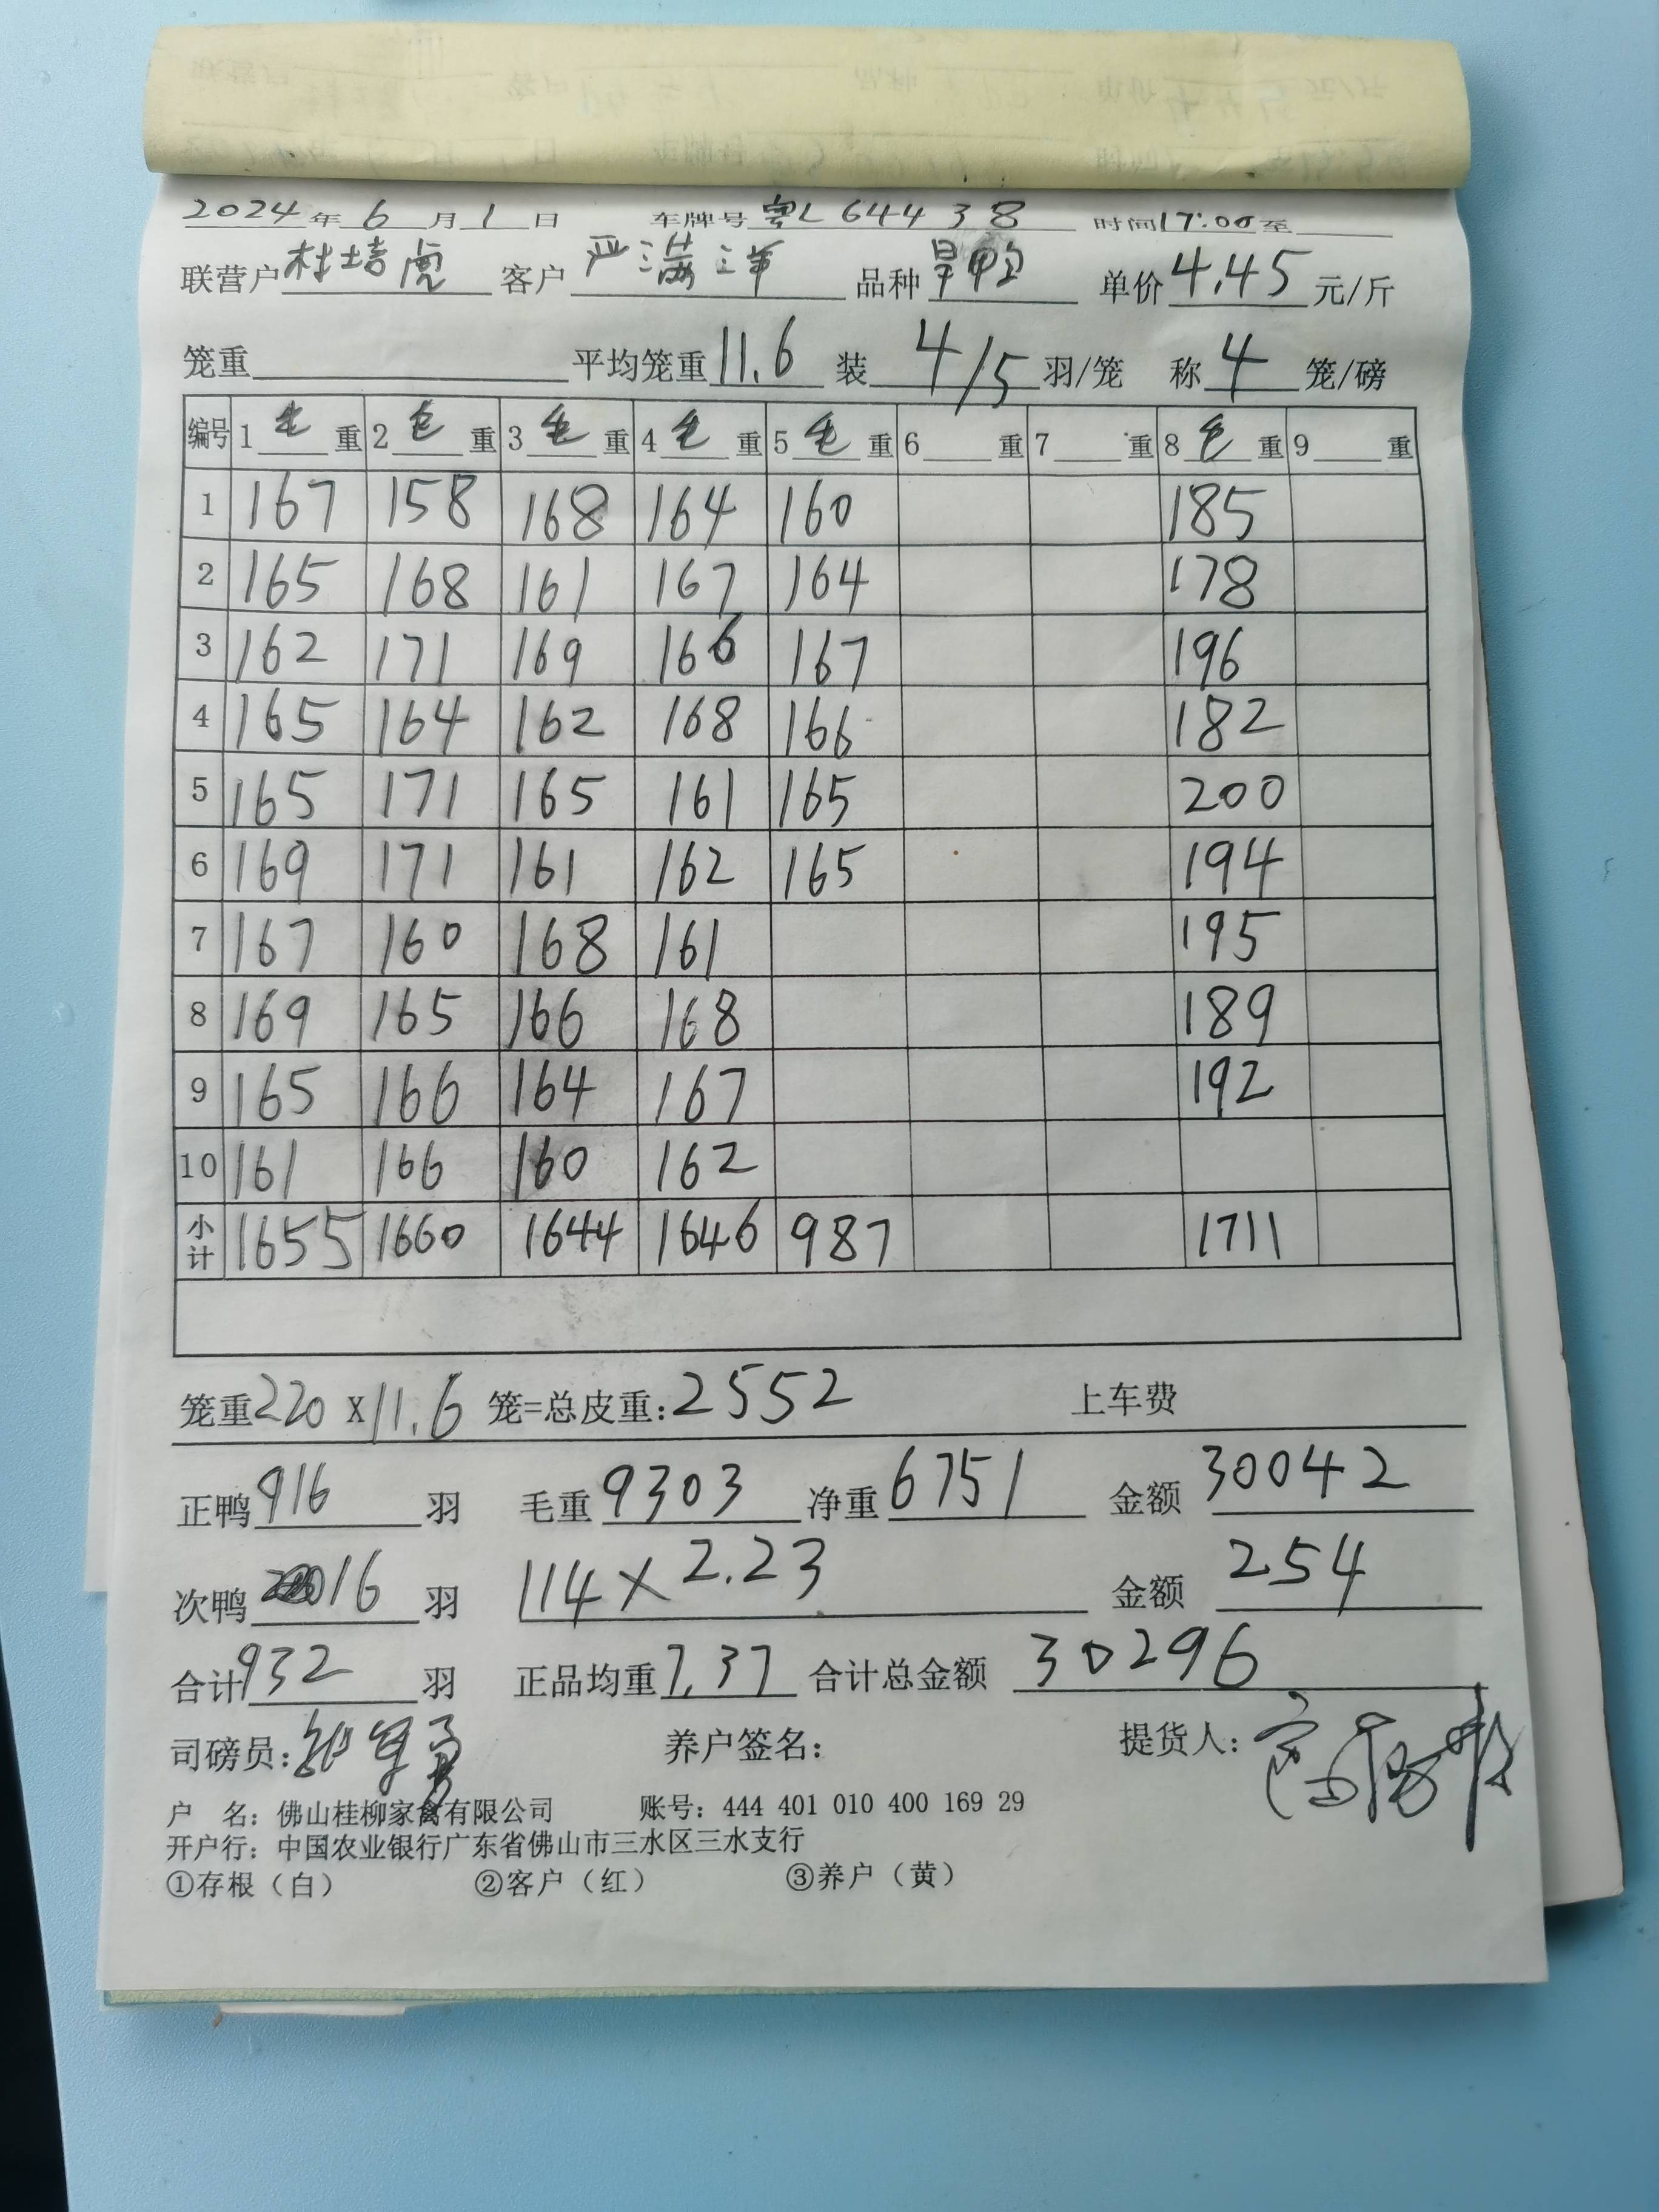 2024年6月1日 车牌号粤L64438 时间17:00至
联营户林培虎 客户严满洋 品种旱鸭 单价4.45元/斤
笼重 平均笼重11.6 装4/5羽/笼 称4笼/磅
编号 1毛重 2毛重 3毛重 4毛重 5毛重 6重 7重 8毛重 9重
1 167 158 168 164 160 185
2 165 168 161 167 164 178
3 162 171 169 166 167 196
4 165 164 162 168 166 182
5 165 171 165 161 165 200
6 169 171 161 162 165 194
7 167 160 168 161 195
8 169 165 166 168 189
9 165 166 164 167 192
10 161 166 160 162
小计 1655 1660 1644 1646 987 1711
笼重220X11.6笼=总皮重:2552 上车费
正鸭916羽 毛重9303 净重6751 金额30042
次鸭16羽 114×2.23 金额254
合计932羽 正品均重7.37 合计总金额30296
司磅员: 养户签名: 提货人:
户 名: 佛山桂柳家禽有限公司 账号: 444 401 010 400 169 29
开户行: 中国农业银行广东省佛山市三水区三水支行
①存根（白） ②客户（红） ③养户（黄）